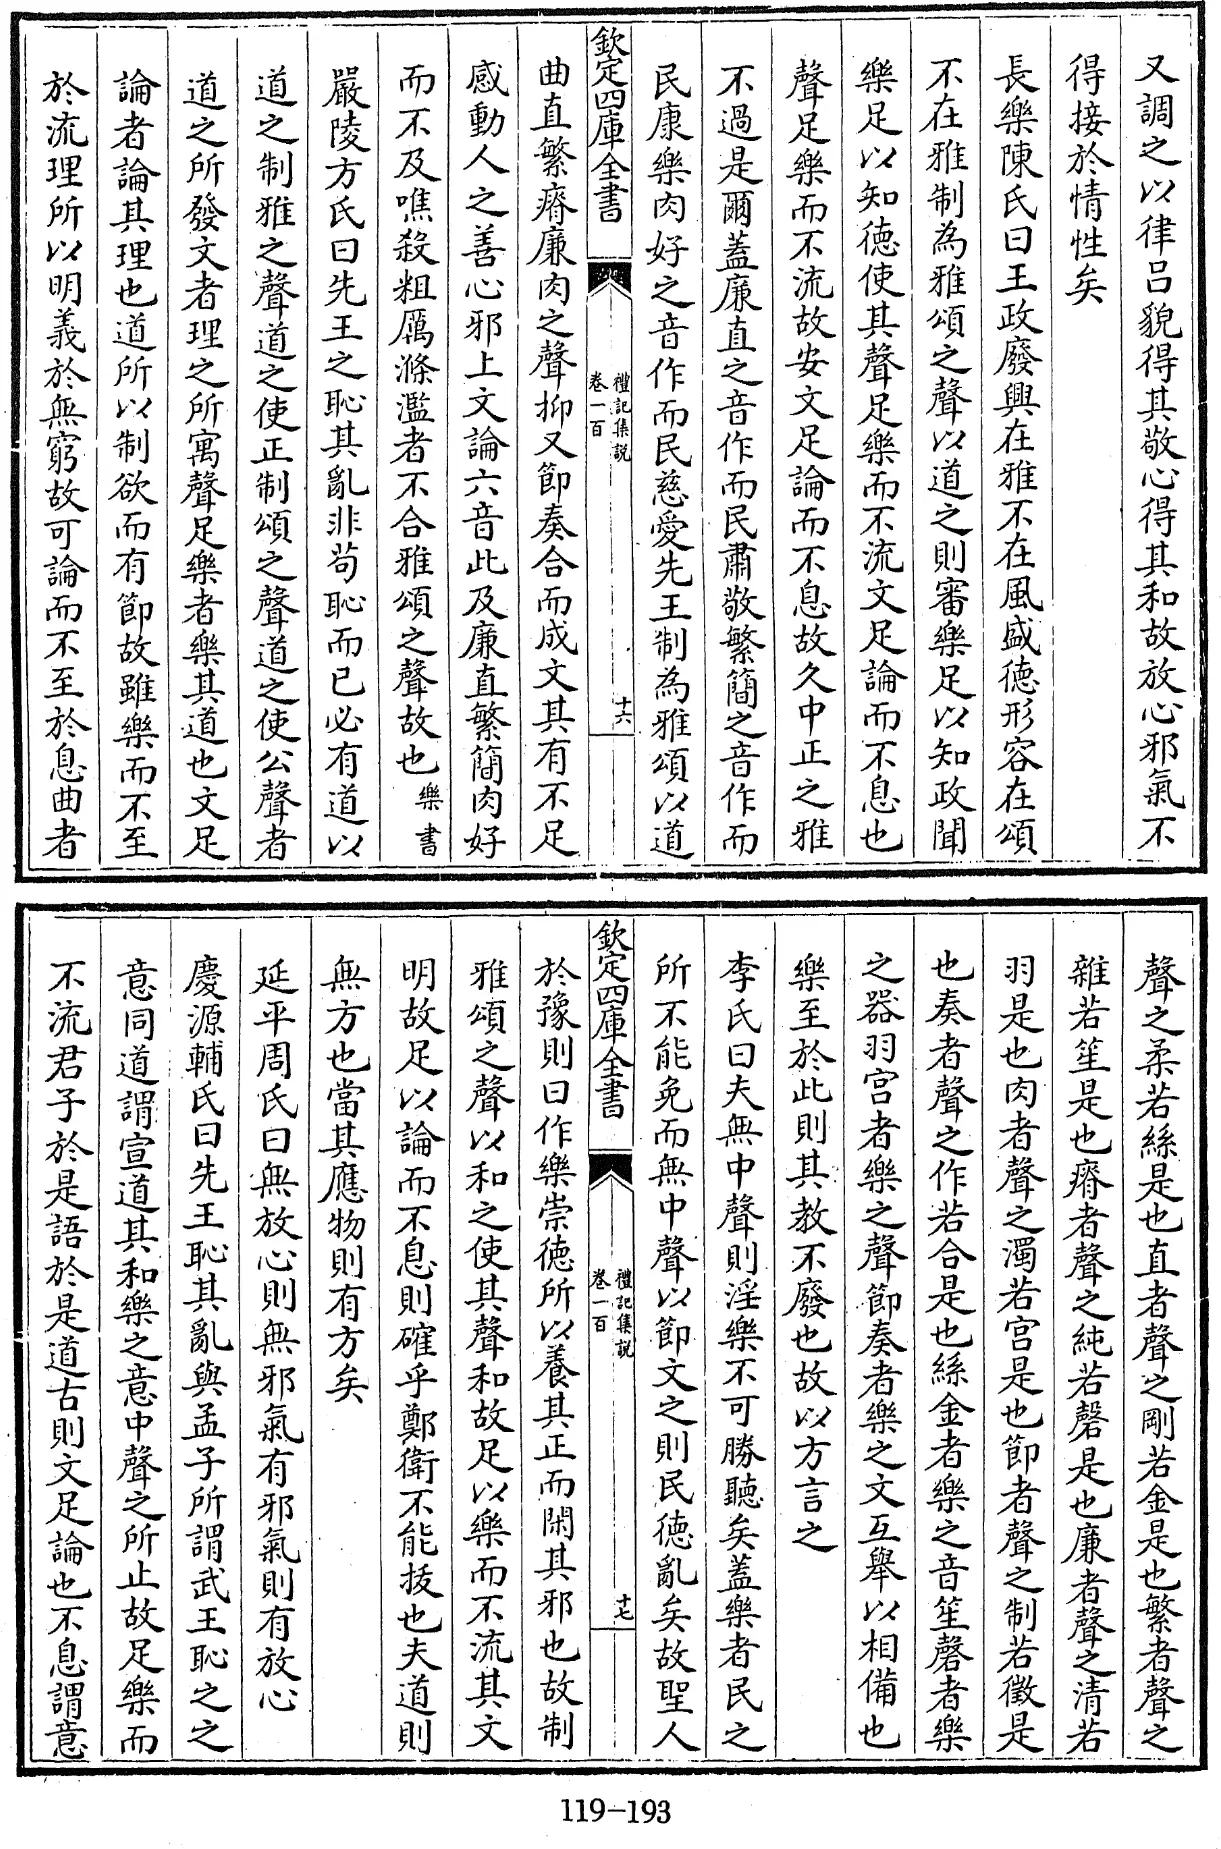 又調之以律呂貌得其敬心得其和故放心邪氣不
得接於情性矣
長樂陳氏曰王政廢興在雅不在風盛德形容在頌
不在雅制為雅頌之聲以道之則審樂足以知政聞
樂足以知德使其聲足樂而不流文足論而不息也
聲足樂而不流故安文足論而不息故久中正之雅
不過是爾蓋廉直之音作而民肅敬繁簡之音作而
民康樂肉好之音作而民慈愛先王制為雅頌以道
欽定四庫全書
禮記集說
卷一百
十六
曲直繁瘠廉肉之聲抑又節奏合而成文其有不足
感動人之善心邪上文論六音此及廉直繁簡肉好
而不及噍殺粗厲滌濫者不合雅頌之聲故也樂書
嚴陵方氏曰先王之恥其亂非苟恥而已必有道以
道之制雅之聲道之使正制頌之聲道之使公聲者
道之所發文者理之所寓聲足樂者樂其道也文足
論者論其理也道所以制欲而有節故雖樂而不至
於流理所以明義於無窮故可論而不至於息曲者
聲之柔若絲是也直者聲之剛若金是也繁者聲之
雜若笙是也瘠者聲之純若磬是也廉者聲之清若
羽是也肉者聲之濁若宮是也節者聲之制若徵是
也奏者聲之作若合是也絲金者樂之音笙磬者樂
之器羽宮者樂之聲節奏者樂之文互舉以相備也
樂至於此則其教不廢也故以方言之
李氏曰夫無中聲則淫樂不可勝聽矣蓋樂者民之
所不能免而無中聲以節文之則民德亂矣故聖人
欽定四庫全書
禮記集說
卷一百
十七
於豫則曰作樂崇德所以養其正而閑其邪也故制
雅頌之聲以和之使其聲和故足以樂而不流其文
明故足以論而不息則確乎鄭衛不能拔也夫道則
無方也當其應物則有方矣
延平周氏曰無放心則無邪氣有邪氣則有放心
慶源輔氏曰先王恥其亂與孟子所謂武王恥之之
意同道謂宣道其和樂之意中聲之所止故足樂而
不流君子於是語於是道古則文足論也不息謂意
119-193